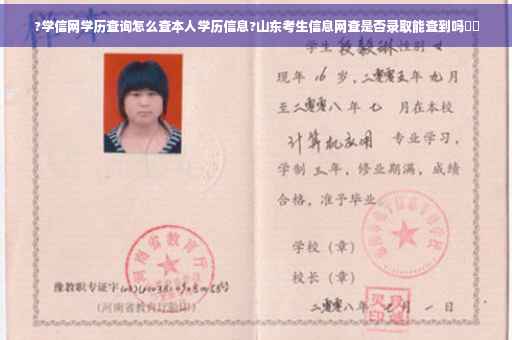 ?学信网学历查询怎么查本人学历信息?山东考生信息网查是否录取能查到吗
学生 性别 女
现年 16 岁,二零零五年 九月
至二零零八年 七 月在本校
计算机应用 专业学习,
学制 三年,修业期满,成绩
合格,准予毕业
学校(章)
校长(章)
二零零八年 七 月 一 日
河南省教育厅
豫教职专证字
(河南省教育厅验印)